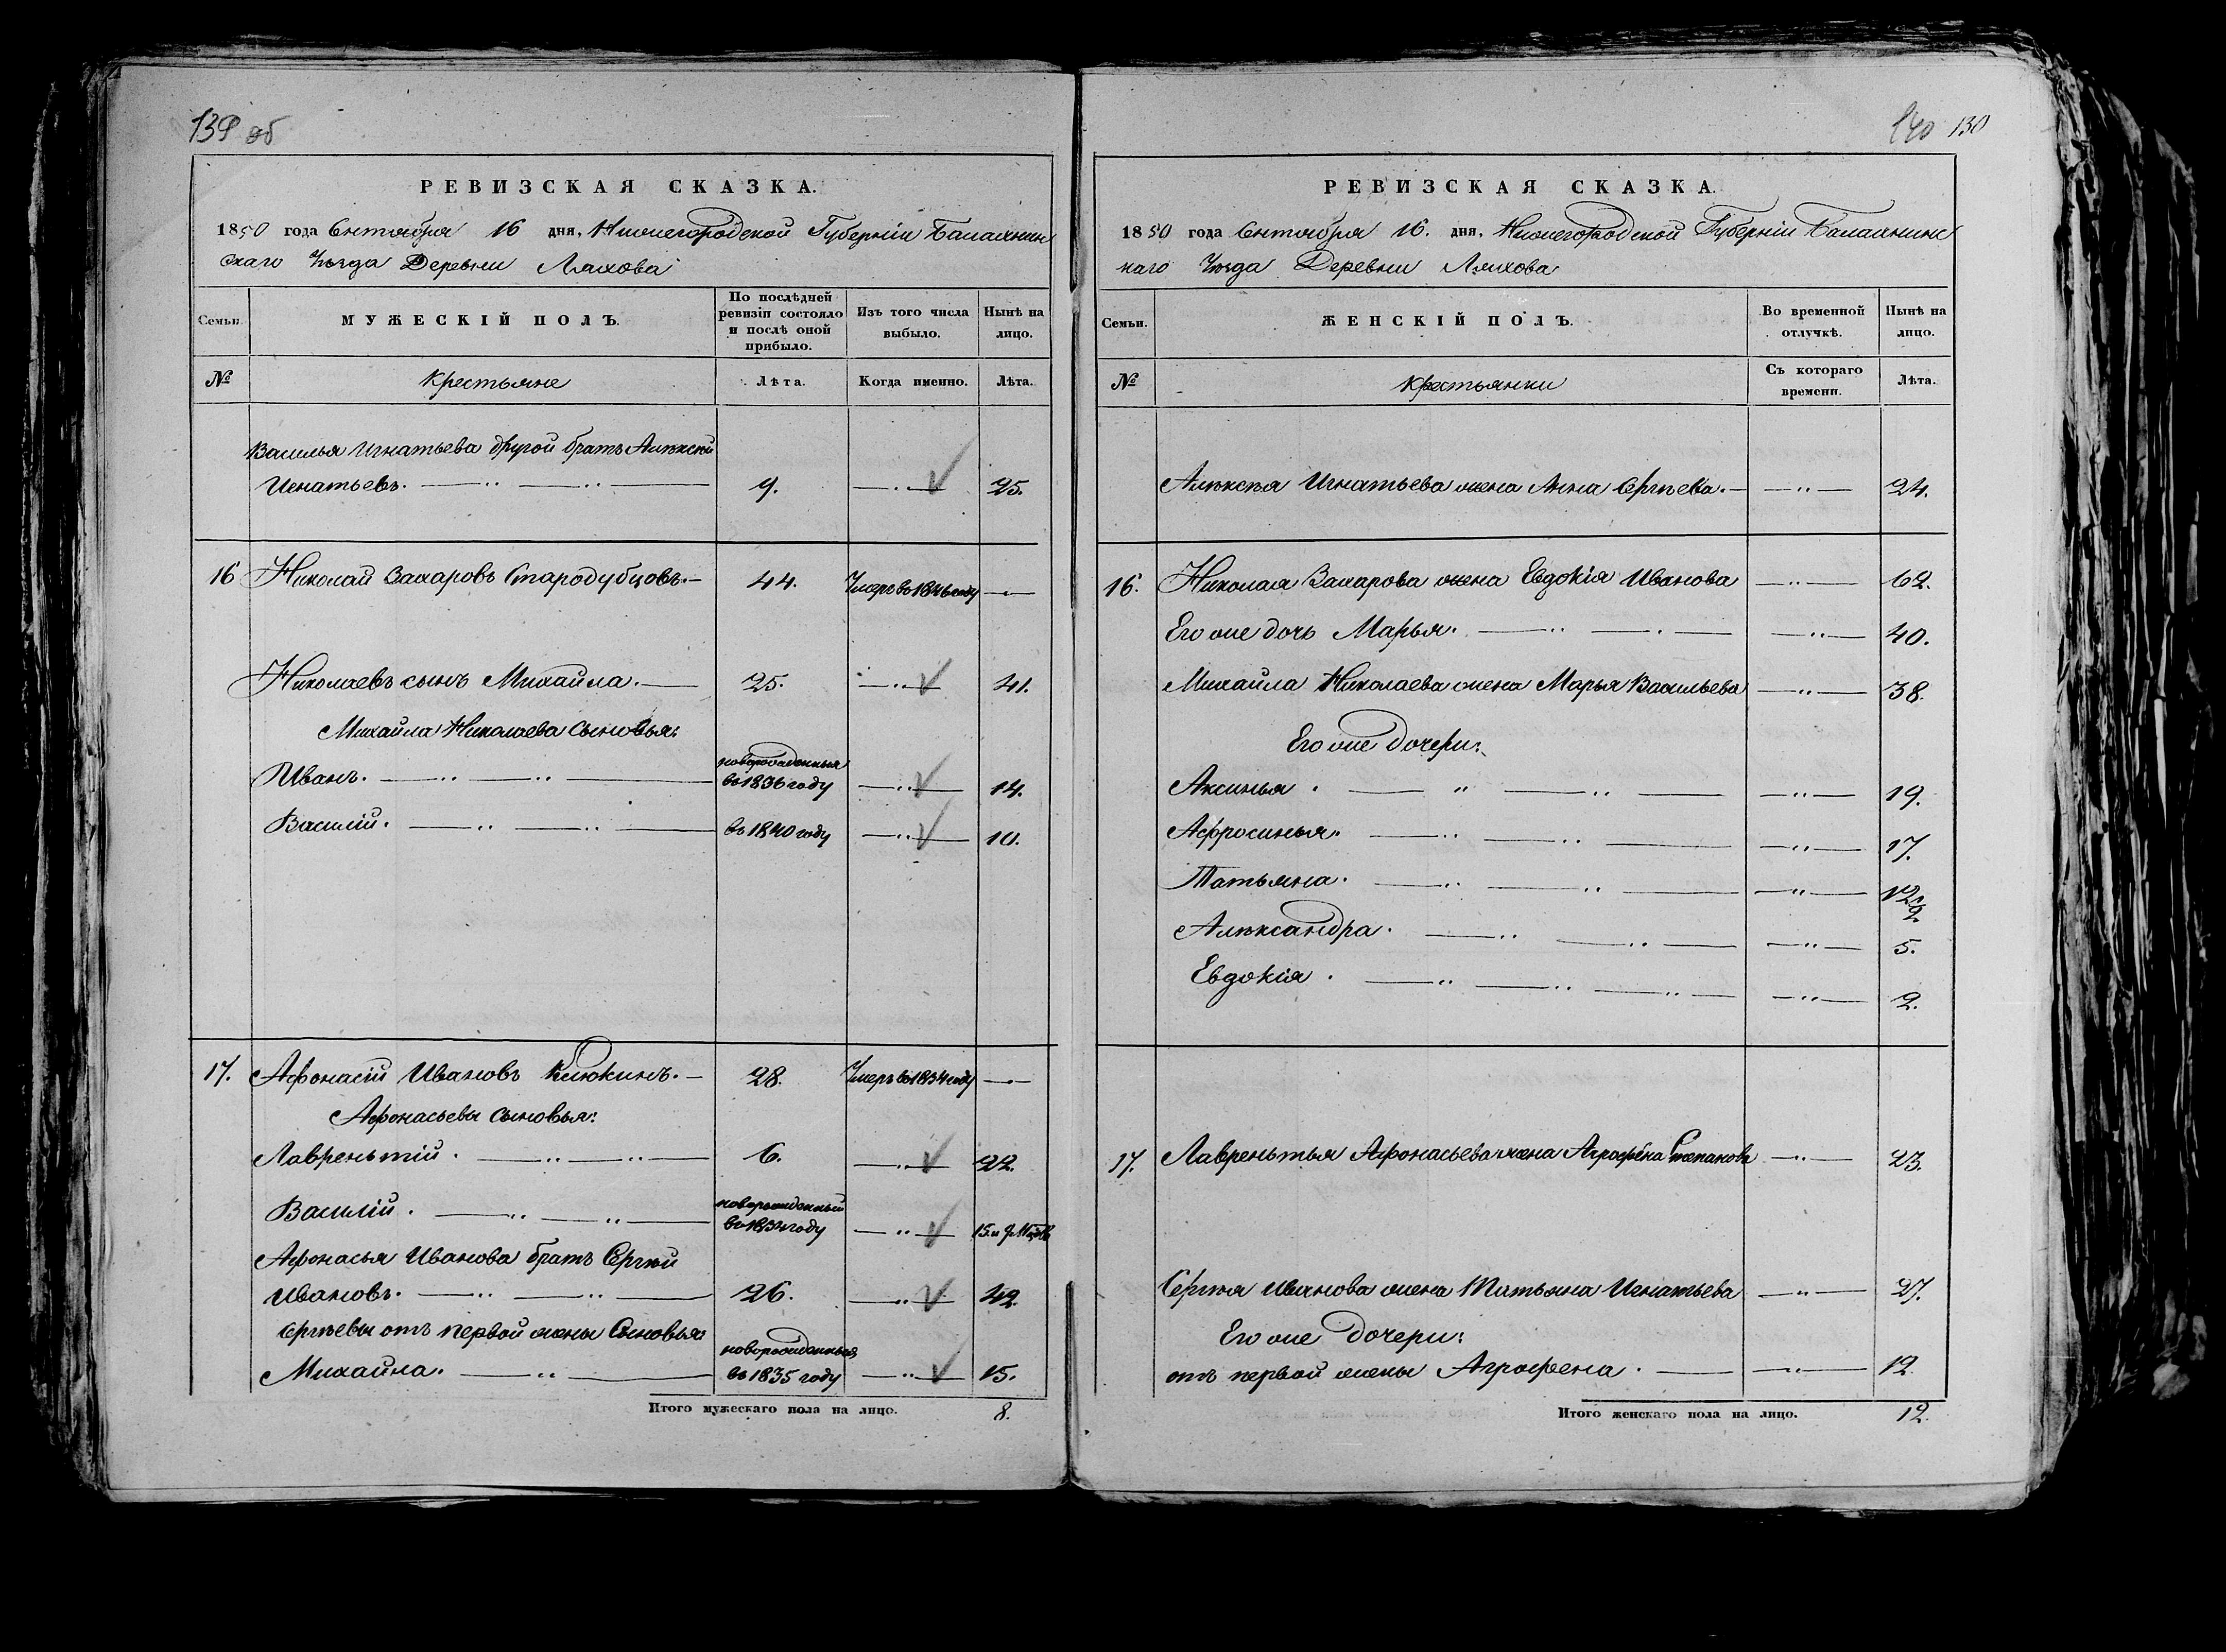 139 об
РЕВИЗСКАЯ СКАЗКА.
1850 года Сентября 16 дня, Нижегородской Губерніи Балахнин
скаго Уѣзда Деревни Ляхова
Семьи.
МУЖЕСКІЙ ПОЛЪ.
По послѣдней ревизіи состояло и послѣ оной прибыло.
Изъ того числа выбыло.
Нынѣ на лицо.
№ Крестьяне Лѣта. Когда именно. Лѣта.
Василья Игнатьева другой братъ Алѣксѣй
Игнатьевъ. 9. 25.
16 Николай Захаровъ Стародубцовъ. 44. Умеръ во 1846 году
Николаевъ сынъ Михайла. 25. 41.
Михайла Николаева сыновья:
Иванъ. новорожденныя во 1836 году 14.
Василій. въ 1840 году 10.
17. Афонасій Ивановъ Клюкинъ. 28. Умеръ во 1834 году
Афонасьевы сыновья:
Лаврентьтій. 6. 22.
Василій. новорожденный во 1834 году 15. и 9. Мцвъ
Афонасья Иванова братъ Сергѣй
Ивановъ. 26. 42.
Сергѣевы отъ первой жены Сыновья
Михайла. новорожденныя въ 1835 году 15.
Итого мужескаго пола на лицо. 8.
140 130
РЕВИЗСКАЯ СКАЗКА.
1850 года Сентября 16. дня, Нижегородской Губерніи Балахнинс
каго Уѣзда Деревни Ляхова
Семьи.
ЖЕНСКІЙ ПОЛЪ.
Во временной отлучкѣ.
Нынѣ на лицо.
№ Крестьянки Съ котораго времени. Лѣта.
Алѣксѣя Игнатьева жена Анна Сергѣева. 24.
16. Николая Захарова жена Евдокія Иванова 62.
Его же дочь Марья. 40.
Михайла Николаева жена Марья Васильева 38.
Его же дочери:
Аксинья. 19.
Афросинья. 17.
Татьяна. 12
Алѣксандра. 5.
Евдокія. 2.
17. Лаврентья Афонасьева жена Аграфѣна Степанова 23.
Сергѣя Иванова жена Татьяна Игнатьева 27.
Его же дочери:
отъ первой жены Аграфена. 12
Итого женскаго пола на лицо. 12.